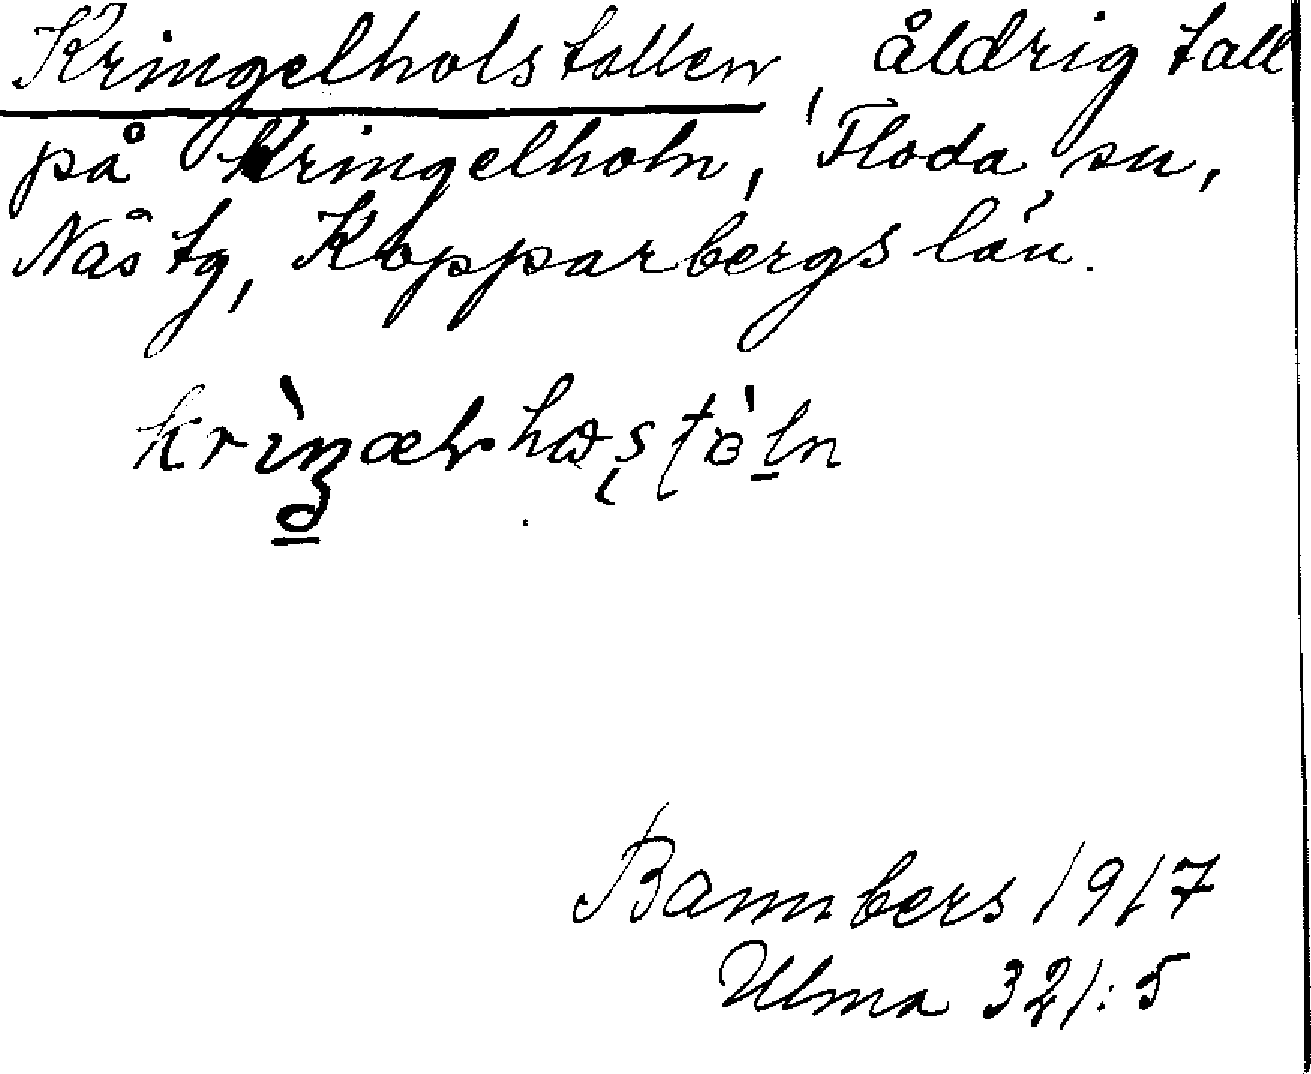 Kringelholstallen, åldrig tall
på Kringelholn, Floda sn,
Nås tg, Kopparbergs län.
Bannbers 1917
Ulma 321:5